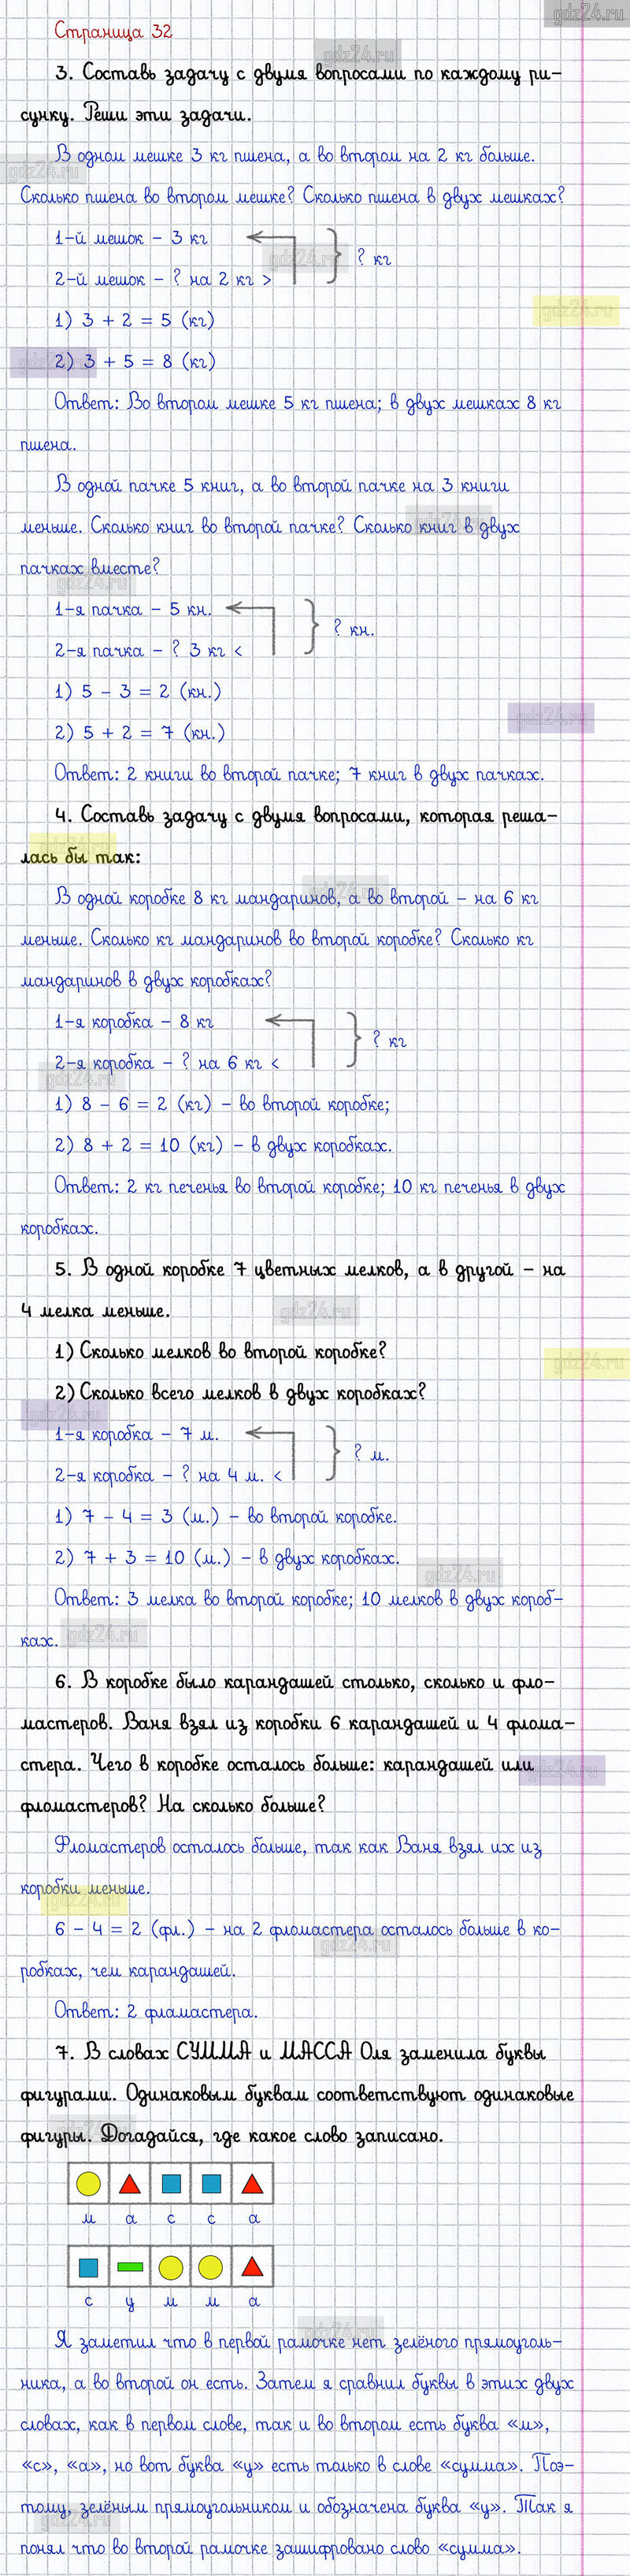 gdz24.ru
Страница 32
gdz24.ru
3. Составь задачу с двумя вопросами по каждому ри-
сунку. Реши эти задачи.
В одном мешке 3 кг пшена, а во втором на 2 кг больше.
gdz24.ru
Сколько пшена во втором мешке? Сколько пшена в двух мешках?
1-й мешок – 3 кг
? кг
gdz24.ru
2-й мешок – ? на 2 кг >
gdz24.ru
1) 3 + 2 = 5 (кг)
gdz24.ru
2) 3 + 5 = 8 (кг)
Ответ: Во втором мешке 5 кг пшена; в двух мешках 8 кг
пшена.
В одной пачке 5 книг, а во второй пачке на 3 книги
gdz24.ru
меньше. Сколько книг во второй пачке? Сколько книг в двух
пачках вместе?
gdz24.ru
1-я пачка – 5 кн.
? кн.
2-я пачка – ? 3 кг <
1) 5 – 3 = 2 (кн.)
gdz24.ru
2) 5 + 2 = 7 (кн.)
Ответ: 2 книги во второй пачке; 7 книг в двух пачках.
4. Составь задачу с двумя вопросами, которая реша-
gdz24.ru
лась бы так:
gdz24.ru
В одной коробке 8 кг мандаринов, а во второй – на 6 кг
меньше. Сколько кг мандаринов во второй коробке? Сколько кг
мандаринов в двух коробках?
1-я коробка – 8 кг
? кг
2-я коробка – ? на 6 кг <
gdz24.ru
1) 8 – 6 = 2 (кг) – во второй коробке;
2) 8 + 2 = 10 (кг) – в двух коробках.
Ответ: 2 кг печенья во второй коробке; 10 кг печенья в двух
коробках.
5. В одной коробке 7 цветных мелков, а в другой – на
4 мелка меньше.
gdz24.ru
1) Сколько мелков во второй коробке?
gdz24.ru
2) Сколько всего мелков в двух коробках?
gdz24.ru
1-я коробка – 7 м.
? м.
2-я коробка – ? на 4 м. <
1) 7 – 4 = 3 (м.) – во второй коробке.
2) 7 + 3 = 10 (м.) – в двух коробках.
gdz24.ru
Ответ: 3 мелка во второй коробке; 10 мелков в двух короб-
ках.
gdz24.ru
6. В коробке было карандашей столько, сколько и фло-
мастеров. Ваня взял из коробки 6 карандашей и 4 флома-
стера. Чего в коробке осталось больше: карандашей или
gdz24.ru
фломастеров? На сколько больше?
Фломастеров осталось больше, так как Ваня взял их из
коробки меньше.
gdz24.ru
6 – 4 = 2 (фл.) – на 2 фломастера осталось больше в ко-
gdz24.ru
робках, чем карандашей.
Ответ: 2 фламастера.
7. В словах СУММА и МАССА Оля заменила буквы
фигурами. Одинаковым буквам соответствуют одинаковые
gdz24.ru
фигуры. Догадайся, где какое слово записано.
м а с с а
с у м м а
gdz24.ru
Я заметил что в первой рамочке нет зелёного прямоуголь-
ника, а во второй он есть. Затем я сравнил буквы в этих двух
словах, как в первом слове, так и во втором есть буква «м»,
«с», «а», но вот буква «у» есть только в слове «сумма». Поэ-
тому, зелёным прямоугольником и обозначена буква «у». Так я
gdz24.ru
понял что во второй рамочке зашифровано слово «сумма».